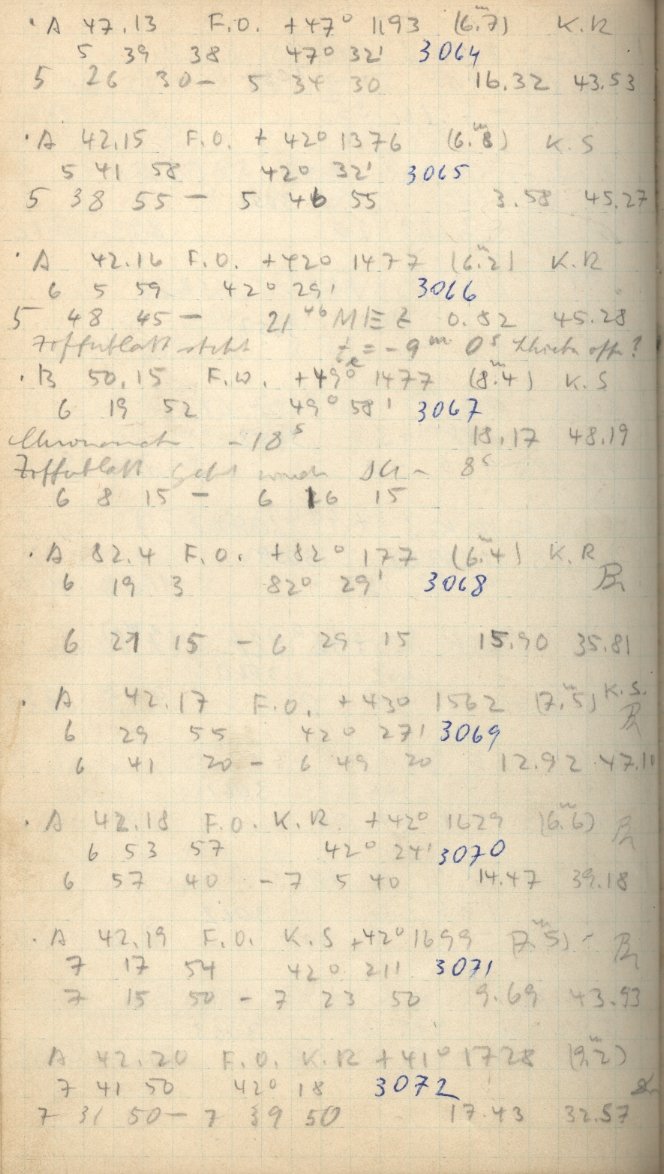 · A 47.13 F.O. +47° 1193 (6.ᵐ7) K.R
5 39 38 47° 32' 3064
5 26 30 – 5 34 30 16.32 43.53
· A 42.15 F.O. + 42° 1376 (6.ᵐ8) K.S
5 41 58 42° 32' 3065
5 38 55 – 5 46 55 3.58 45.27
· A 42.16 F.O. +42° 1477 (6.ᵐ2) K.R
6 5 59 42° 29' 3066
5 48 45 – 21 46 MEZ 0.82 45.28
Zifferblatt steht = -9ᵐ 0ˢ ?
· B 50.15 F.W. +49° 1477 (8.ᵐ4) K.S
6 19 52 49° 58' 3067
-18ˢ 18.17 48.19
Zifferblatt geht 8ˢ
6 8 15 – 6 16 15
· A 82.4 F.O. +82° 177 (6.ᵐ4) K.R
6 19 3 82° 29' 3068
6 21 15 – 6 29 15 15.90 35.81
· A 42.17 F.O. +43° 1562 (7.ᵐ5) K.S.
6 29 55 42° 27' 3069
6 41 20 – 6 49 20 12.92 47.10
· A 42.18 F.O. K.R. +42° 1629 (6.ᵐ6)
6 53 57 42° 24' 3070
6 57 40 – 7 5 40 14.47 39.18
· A 42.19 F.O. K.S +42° 1699 (7.ᵐ5)
7 17 54 42° 21' 3071
7 15 50 – 7 23 50 9.69 43.93
A 42.20 F.O. K.R +41° 1728 (9.ᵐ2)
7 41 50 42° 18 3072
7 31 50 – 7 39 50 17.43 32.57